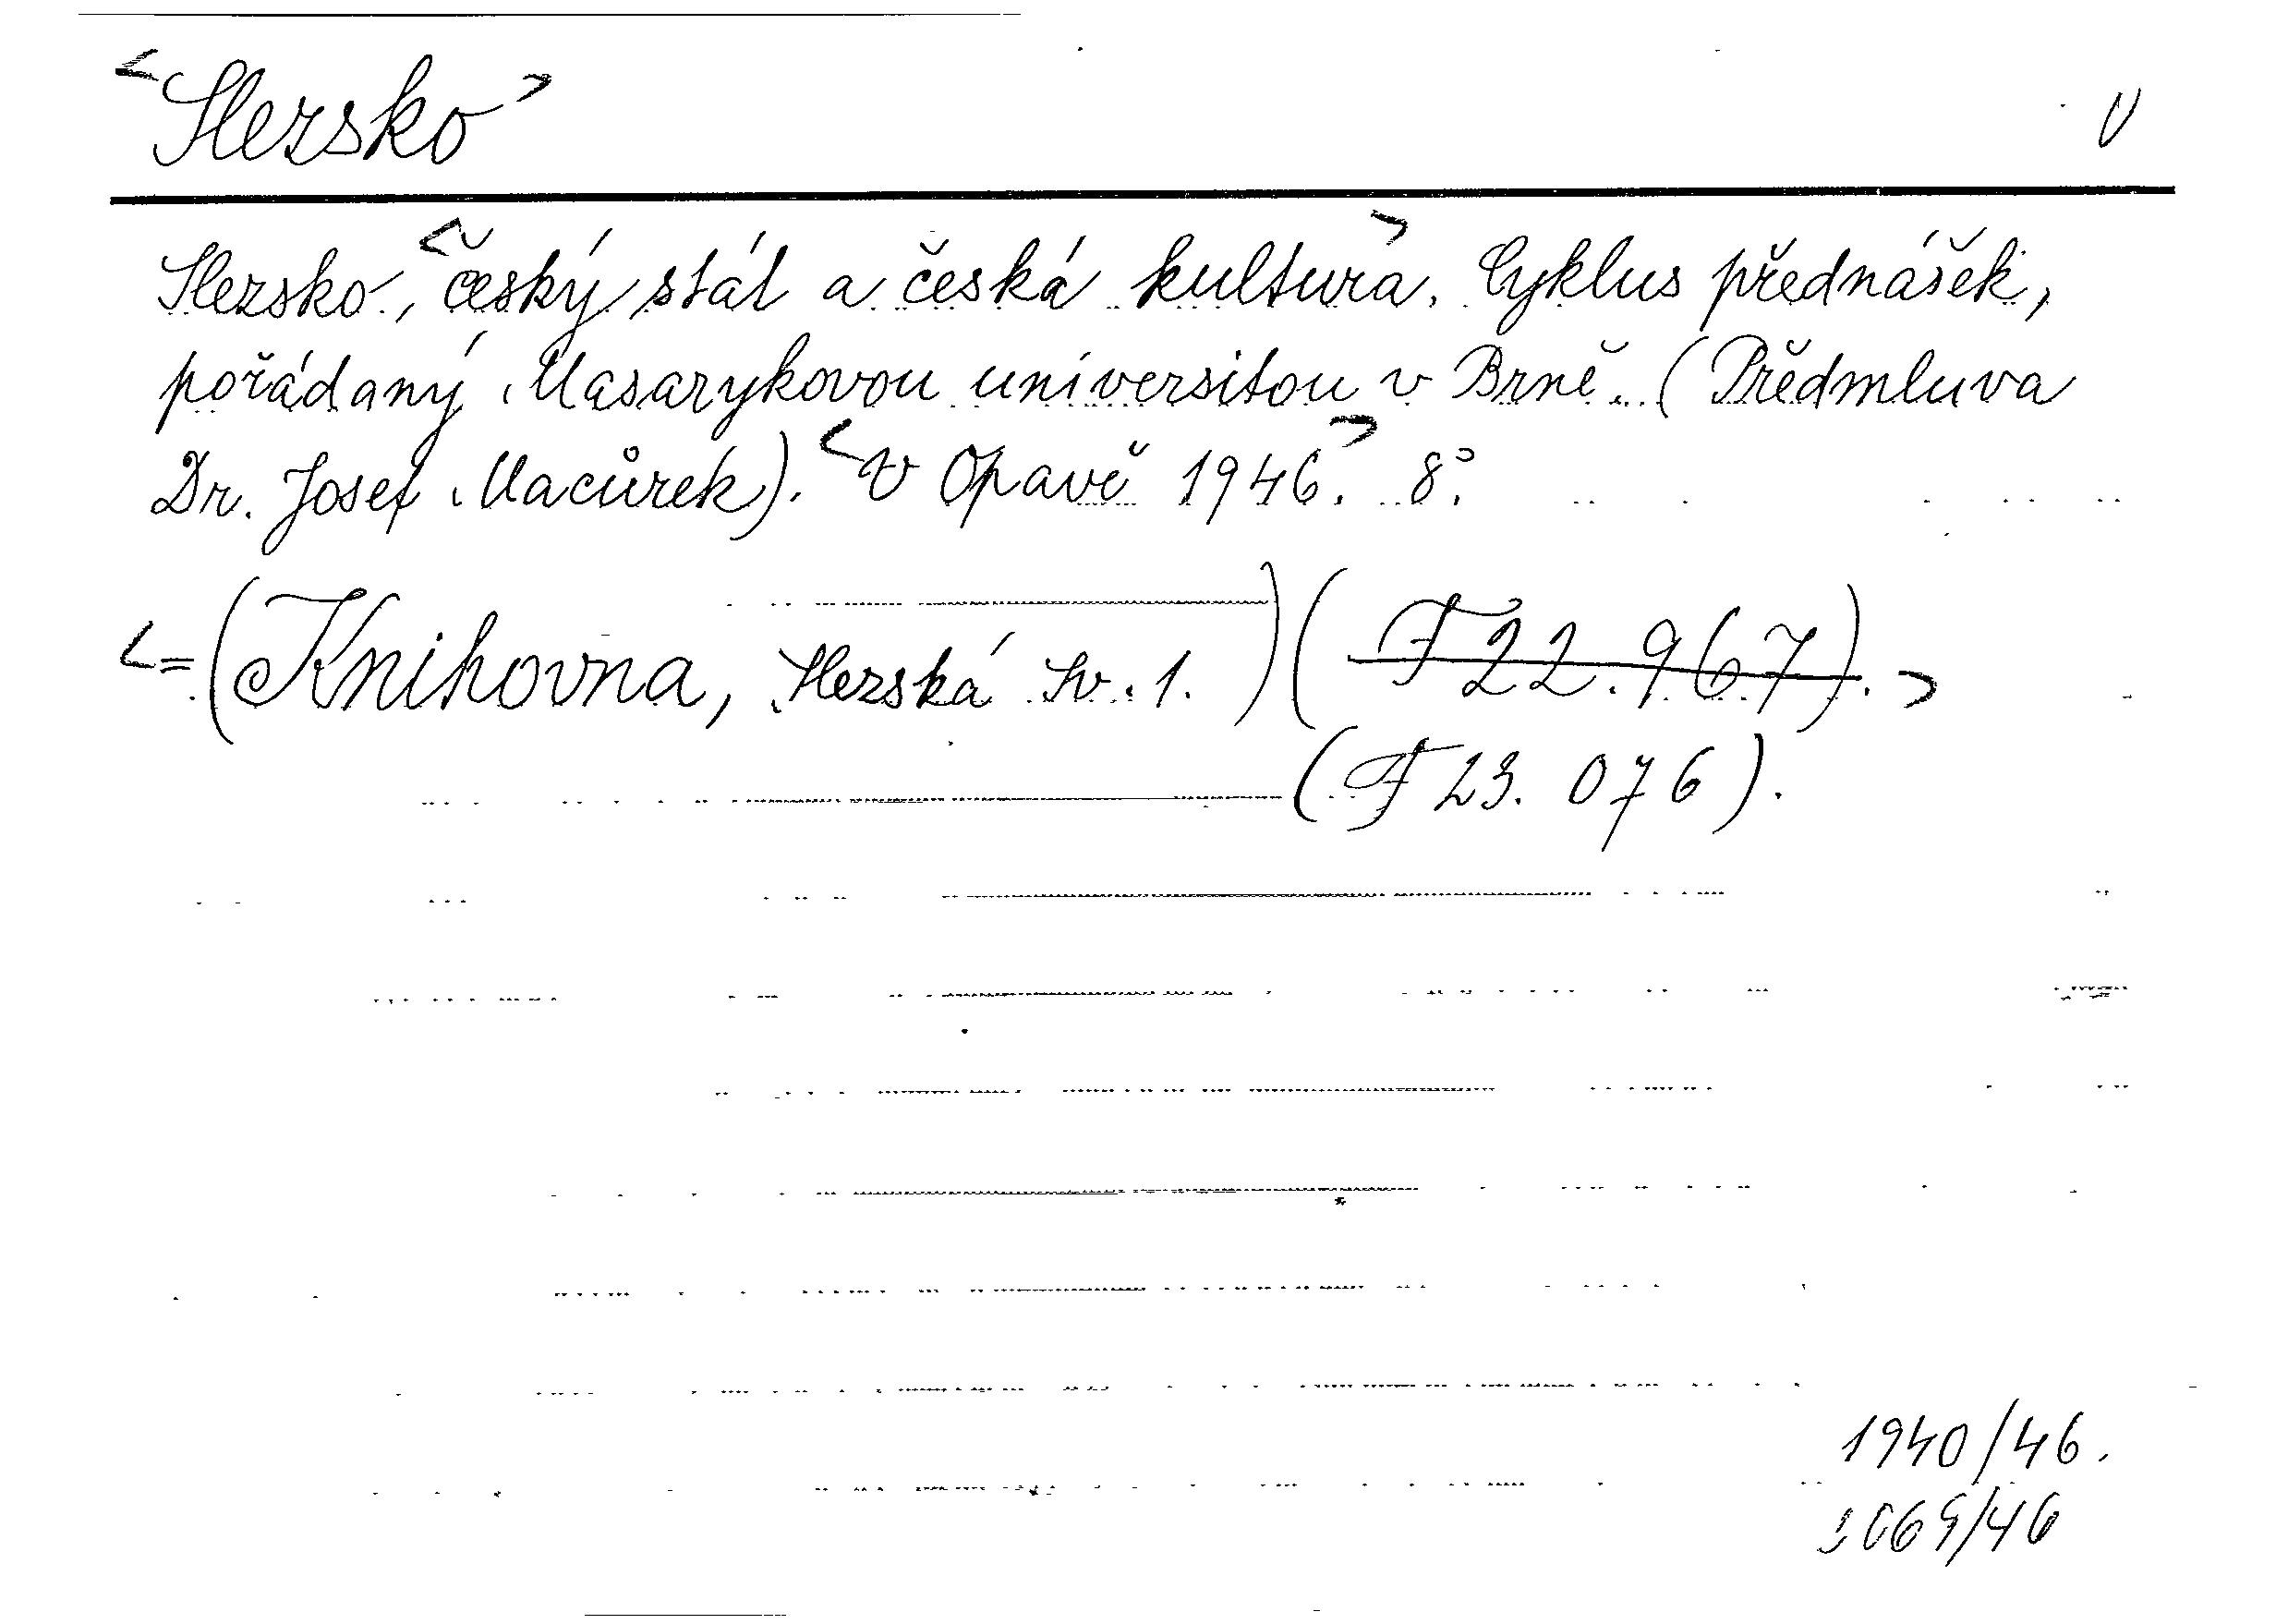 <Slezsko> V
Slezsko, <český stát a česká kultura>. Cyklus přednášek,
pořádaný Masarykovou universitou v Brně. (Předmluva
Dr. Josef Macůrek). <V Opavě 1946.> 8°.
<=(Knihovna, Slezská Sv. 1.) (F 22.967).>
(F 23.076).
1940/46.